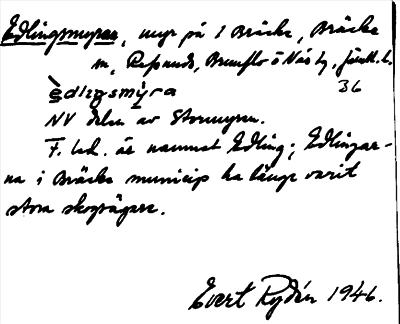 Edlingsmyren, myr på 1 Bräcke, Bräcke
m, Refsunds, Brunflo o Näs tg, Jämtl. l.
èdlıŋsmýra 36
NV delen av Stormyren.
F. led. är namnet Edling; Edlingar-
na i Bräcke municip ha länge varit
stora skogsägare.
Evert Rydén 1946.